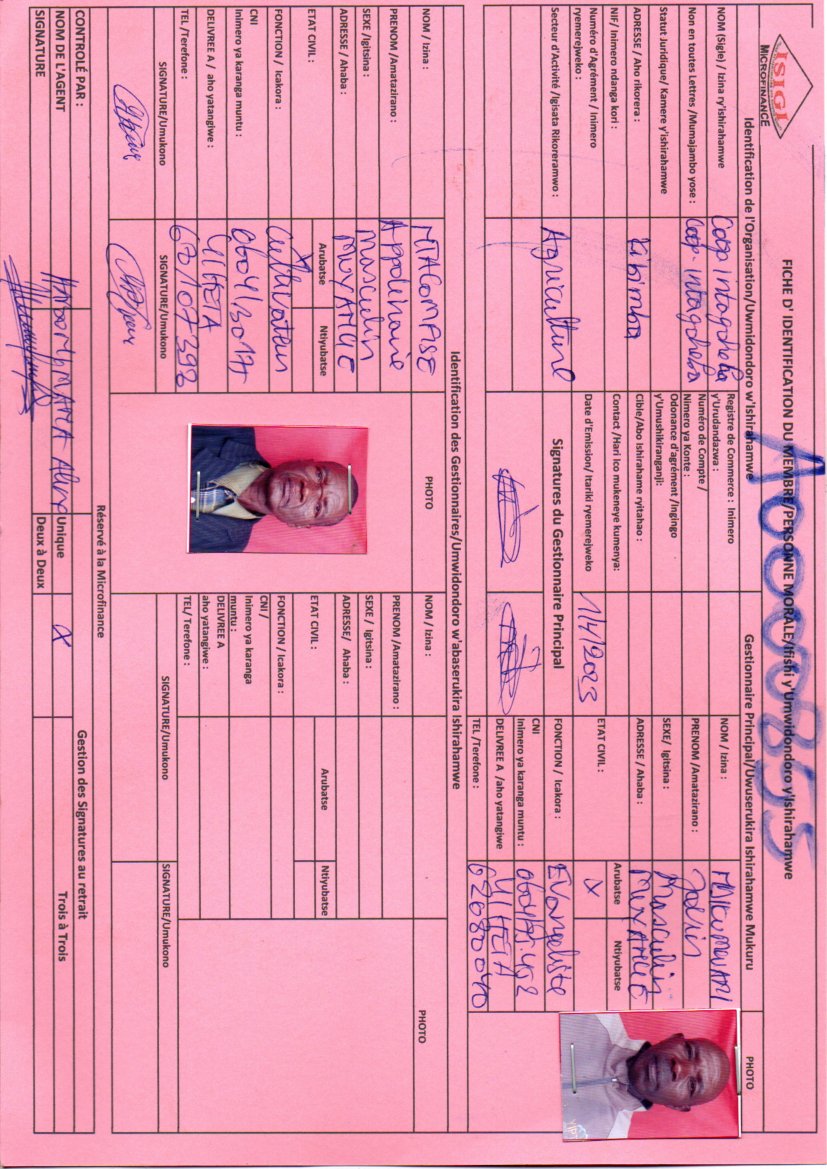 ISIGI
MICROFINANCE
A0000855
FICHE D' IDENTIFICATION DU MEMBRE/PERSONNE MORALE/Ifishi y'Umwidondoro y'Ishirahamwe
Identification de l'Organisation/Uwmidondoro w'Ishirahamwe
NOM (Sigle) / Izina ry'ishirahamwe
Coop intogoheka
Non en toutes Lettres /Mumajambo yose :
Coop- intogoheka
Statut Juridique/ Kamere y'ishirahamwe
ADRESSE / Aho rikorera :
Kibimba
NIF/ Inimero ndanga kori :
Numéro d'Agrément / Inimero
ryemerejweko :
Secteur d'Activité /Igisata Rikoreramwo :
Agriculture
Registre de Commerce : Inimero
y'Urudandazwa :
Numéro de Compte /
Nimero ya Konte :
Odonance d'agrément /Ingingo
y'Umushikiranganji:
Cible/Abo Ishirahame ryitaho :
Contact /Hari ico mukeneye kumenya:
Date d'Emission/ Itariki ryemerejweko
1/4/2023
Signatures du Gestionnaire Principal
Gestionnaire Principal/Uwuserukira Ishirahamwe Mukuru
NOM / Izina :
PRENOM /Amatazirano :
SEXE/ Igitsina :
Masculin
ADRESSE / Ahaba :
MUYANGE
ETAT CIVIL :
Arubatse
Ntiyubatse
X
FONCTION / Icakora :
Evangeliste
CNI
Inimero ya karanga muntu :
DELIVREE A /aho yatangiwe
GIHETA
TEL /Terefone :
PHOTO
Identification des Gestionnaires/Umwidondoro w'abaserukira Ishirahamwe
NOM / Izina :
NTACOMPISE
PRENOM /Amatazirano :
Appolinaire
SEXE /Igitsina :
Masculin
ADRESSE / Ahaba :
MUYANGE
ETAT CIVIL :
Arubatse
Ntiyubatse
X
FONCTION / Icakora :
Cultivateur
CNI
Inimero ya karanga muntu :
DELIVREE A / aho yatangiwe :
GIHETA
TEL /Terefone :
67107398
SIGNATURE/Umukono
SIGNATURE/Umukono
PHOTO
NOM / Izina :
PRENOM /Amatazirano :
SEXE / Igitsina :
ADRESSE/ Ahaba :
ETAT CIVIL :
Arubatse
Ntiyubatse
FONCTION / Icakora :
CNI /
Inimero ya karanga
muntu :
DELIVREE A
aho yatangiwe :
TEL/ Terefone :
SIGNATURE/Umukono
SIGNATURE/Umukono
PHOTO
Réservé à la Microfinance
CONTROLÉ PAR :
NOM DE L'AGENT
SIGNATURE
Gestion des Signatures au retrait
Unique
Deux à Deux
X
Trois à Trois